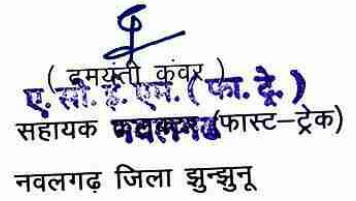 ( दमयंती कंवर )
ए. सी. ई. एम. ( फा. ट्रे. )
सहायक (फास्ट–ट्रेक)
नवलगढ़ जिला झुन्झुनू